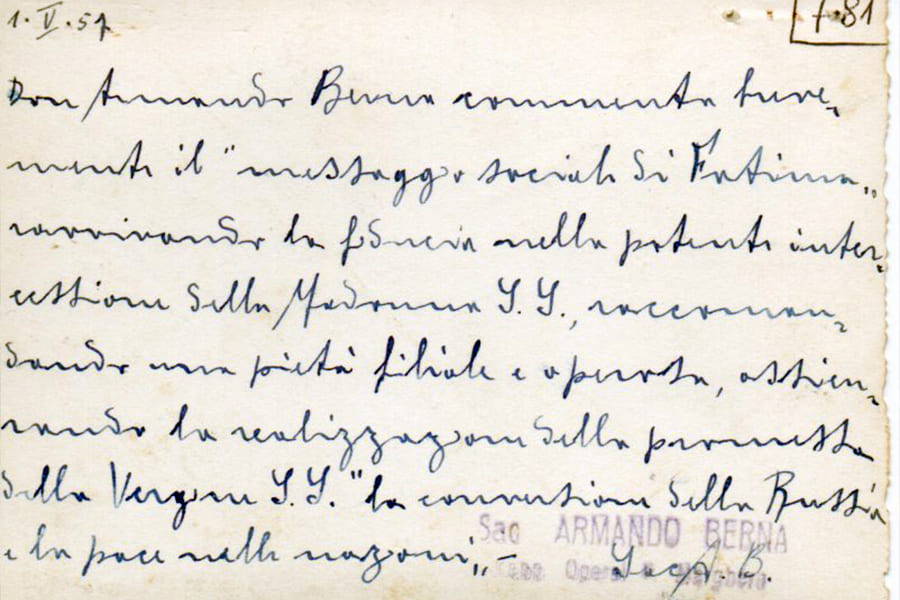 1. V. 57
7-81
Don Armando Berna commenta breve-
mente il "messaggio sociale di Fatima„
ravvivando la fiducia nella potente inter-
cessione della Madonna S.S., raccoman-
dando una pietà filiale e operosa, assicu-
rando la realizzazione della promessa
della Vergine S.S. "la conversione della Russia
e la pace nelle nazioni„ –
Sac ARMANDO BERNA
Sac A. B.